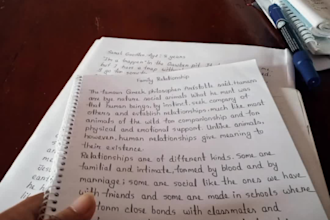 Family Relationship
The famous Greek philosopher Aristotle said, Human
are by nature social animals what he meant was
that human beings, by instinct, seek company of
others and establish relationships much like most
animals of the wild for companionship and for
physical and emotional support. Unlike animals,
however, human relationships give meaning to
their existence.
Relationships are of different kinds. Some are
familial and intimate, formed by blood and by
marriage; some are social like the ones we have
with friends and some are made in schools where
form close bonds with classmates and